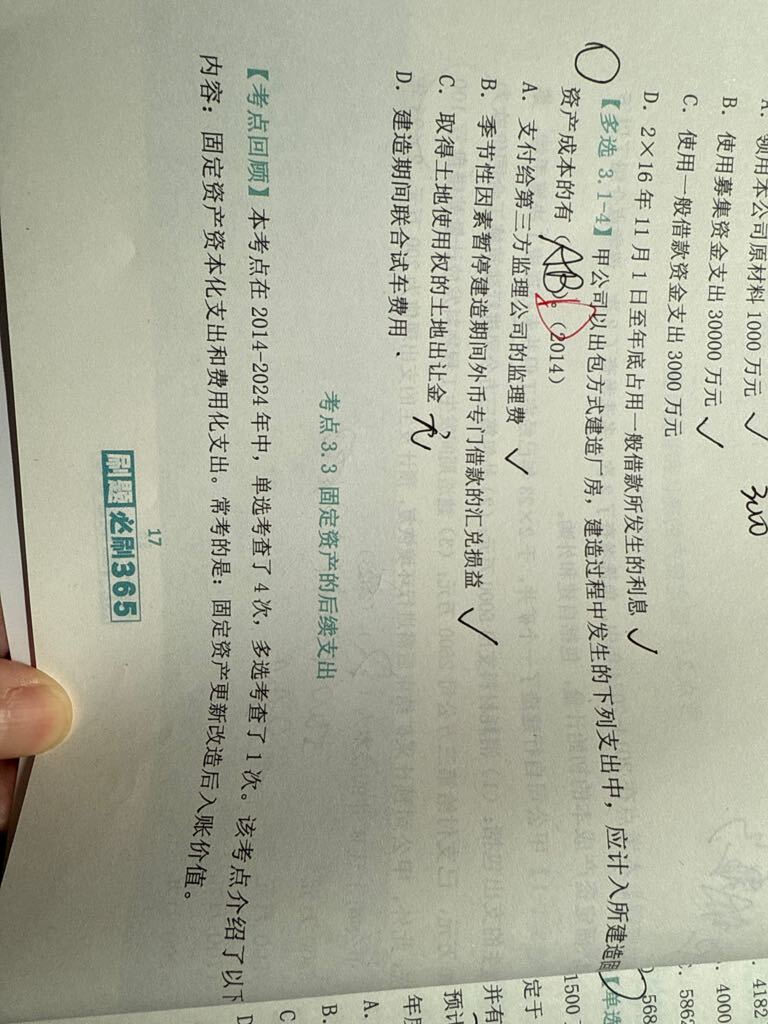 A. 领用本公司原材料 1000 万元 ✓
B. 使用募集资金支出 30000 万元 ✓
C. 使用一般借款资金支出 3000 万元
D. 2×16 年 11 月 1 日至年底占用一般借款所发生的利息 ✓
【多选 3.1-4】甲公司以出包方式建造厂房，建造过程中发生的下列支出中，应计入所建造固
资产成本的有（AB）。（2014）
A. 支付给第三方监理公司的监理费 ✓
B. 季节性因素暂停建造期间外币专门借款的汇兑损益 ✓
C. 取得土地使用权的土地出让金 无
D. 建造期间联合试车费用
考点3.3 固定资产的后续支出
【考点回顾】本考点在 2014-2024 年中，单选考查了 4 次，多选考查了 1 次。该考点介绍了以下
内容：固定资产资本化支出和费用化支出。常考的是：固定资产更新改造后入账价值。
17
刷题必刷365
4182
4000
5862
568
【单选
1500
定于
并有
预计
年底
A.
B.
C.
D